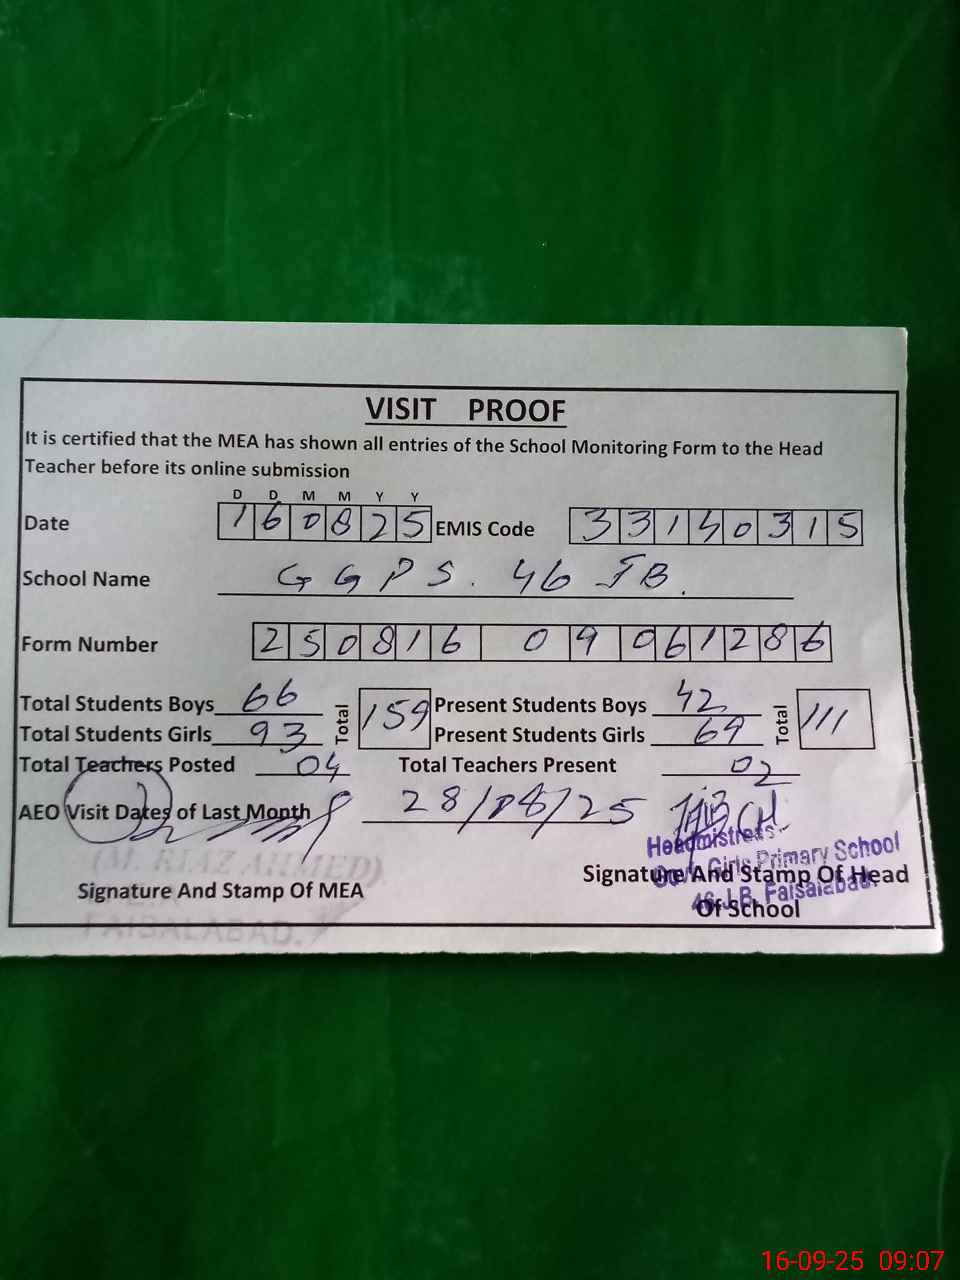 VISIT PROOF
It is certified that the MEA has shown all entries of the School Monitoring Form to the Head
Teacher before its online submission
D D M M Y Y
Date 160825 EMIS Code 33130315
School Name GGPS. 46 JB.
Form Number 250816 0 9 061286
Total Students Boys 66 Total 159 Present Students Boys 42 Total 111
Total Students Girls 93 Present Students Girls 69
Total Teachers Posted 04 Total Teachers Present 02
AEO Visit Dates of Last Month 28/08/25
(M. RIAZ AHMED)
Signature And Stamp Of MEA
FAISALABAD.
Headmistress
Govt. Girls Primary School
46 J.B. Faisalabad
Signature And Stamp Of Head
Of School
16-09-25 09:07